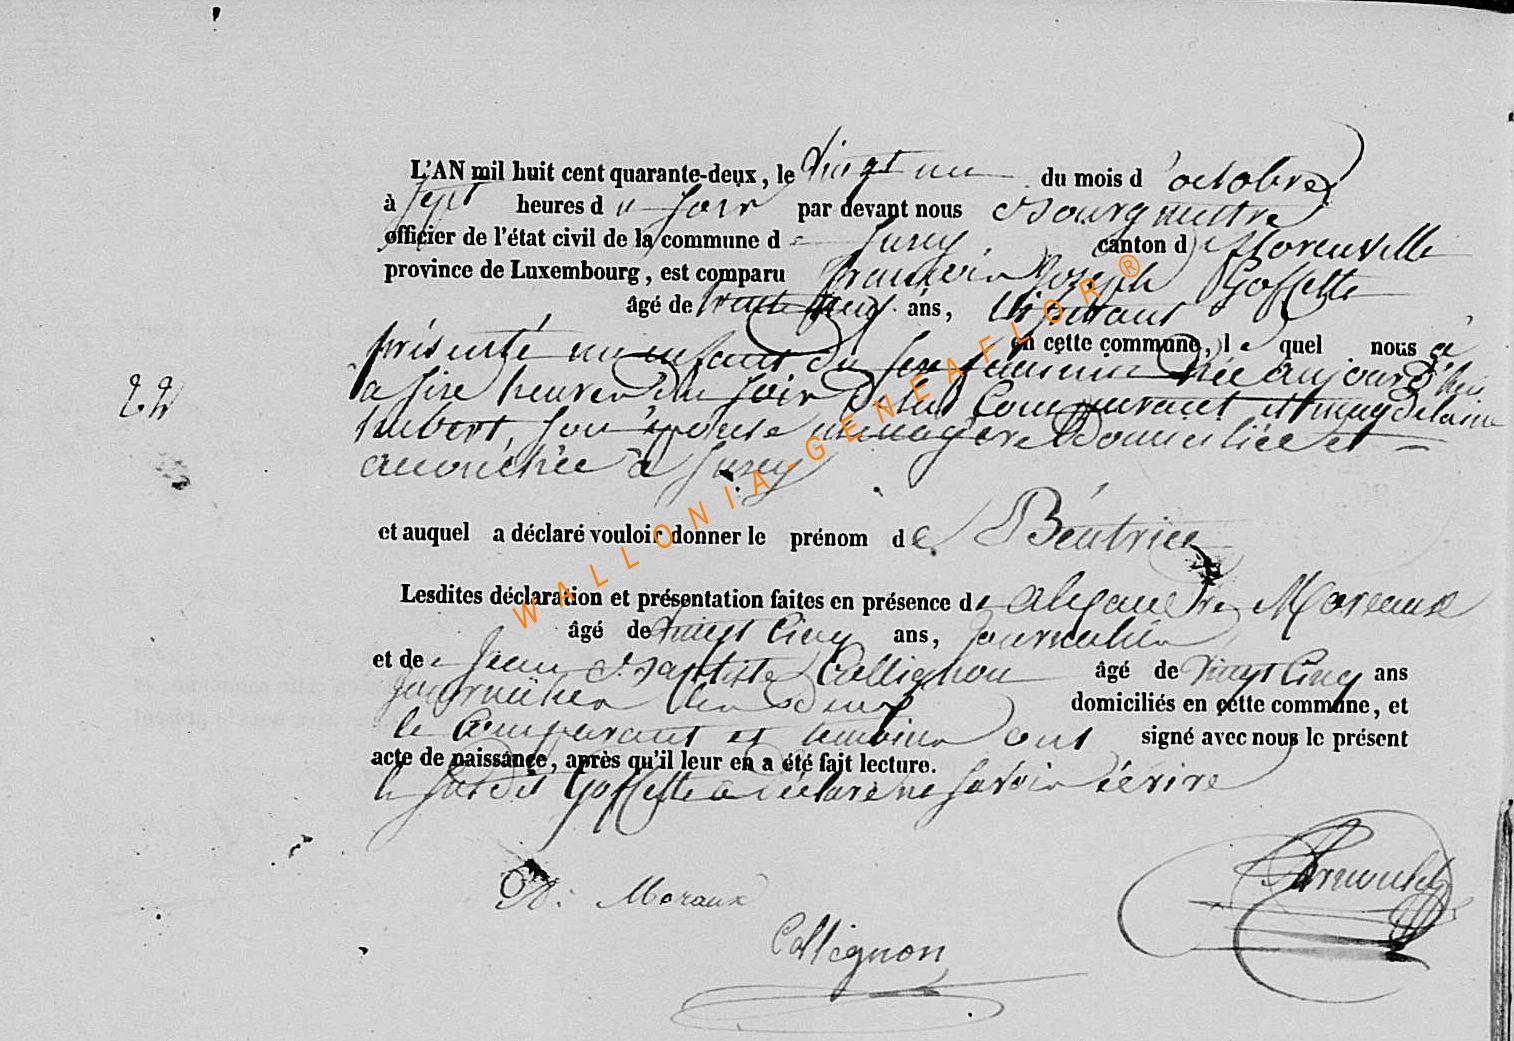 L'AN mil huit cent quarante-deux, le vingt un du mois d'octobre
à sept heures du soir par devant nous Bourgmettre
officier de l'état civil de la commune de Jusey, canton de florenville
province de Luxembourg, est comparu françois Joseph Goffette
âgé de trente neuf ans,
en cette commune, le quel nous a
présenté un enfant du sexe feminin née aujourd'hui
a sixe heures du soir de lui Comparant et magdelaine
hubert, son épouse menagere Domiciliée et
accouchée à Jusey
22
et auquel a déclaré vouloir donner le prénom de Béatrice
Lesdites déclaration et présentation faites en présence de alexandre Moreaux
âgé de vingt Cinq ans, Journalier
et de Jean Baptiste Collignon âgé de vingt Cinq ans
Journalier les deux domiciliés en cette commune, et
le Comparant et temoins ont signé avec nous le présent
acte de naissance, après qu'il leur en a été fait lecture.
le susdit Goffette a déclaré ne savoir écrire
Moraux
Collignon
WALLONIA-GENEAFLOR®